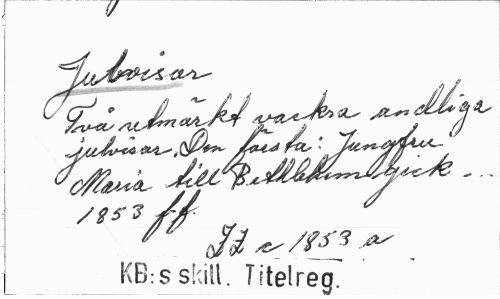 Julvisor
Två utmärkt vackra andliga
julvisor. Den första: Jungfru
Maria till Bethlehem gick ...
1853 ff.
c 1853 a
KB:s skill. Titelreg.